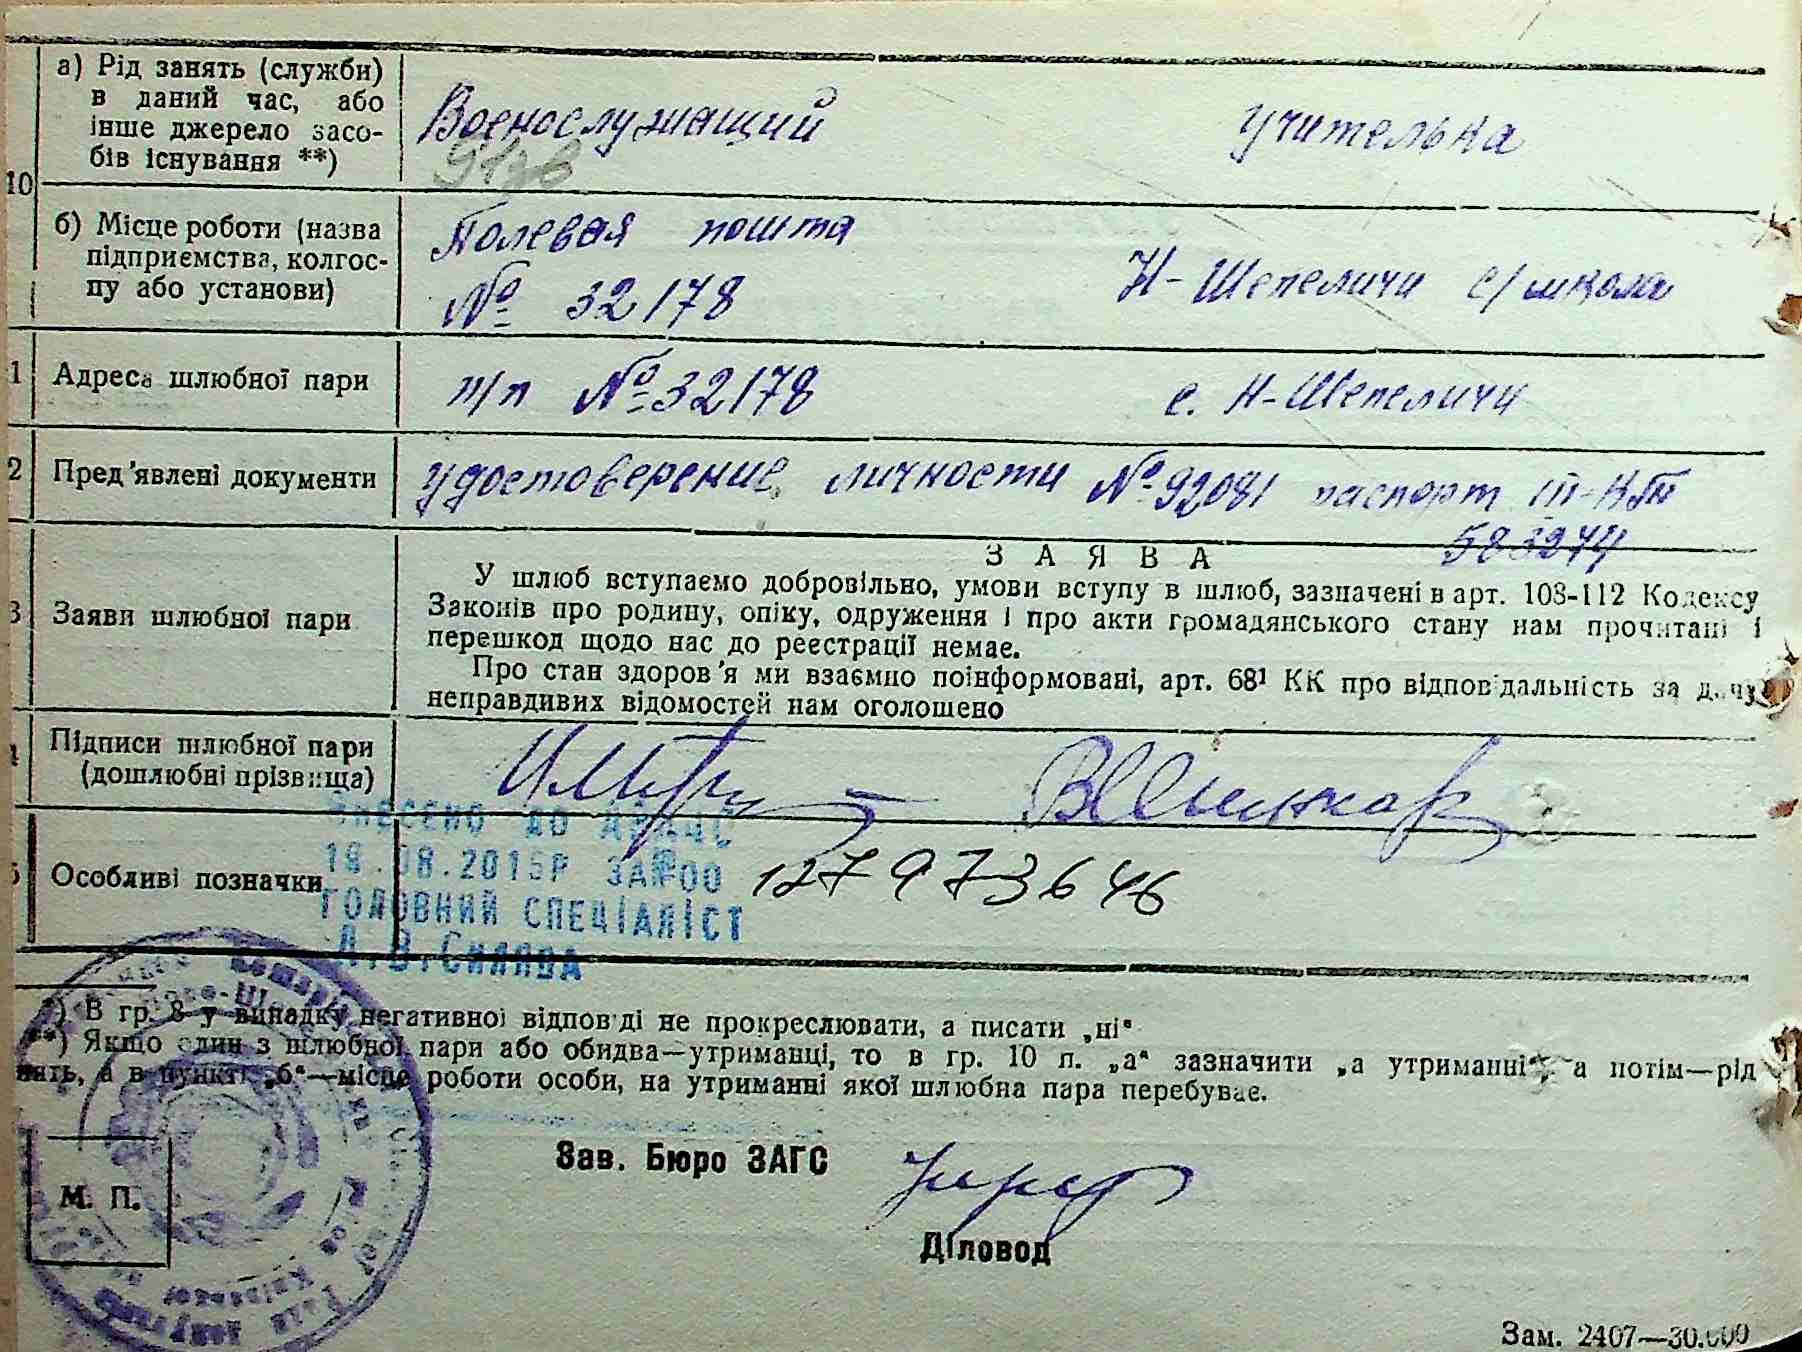 10
а) Рід занять (служби)
в даний час, або
інше джерело засо-
бів існування **)
Военослужащий
учителька
б) Місце роботи (назва
підприємства, колгос-
пу або установи)
Полевая пошта
№ 32178
Н-Шепеличи с/школа
1 Адреса шлюбної пари
п/п № 32178
с. Н-Шепеличи
2 Пред'явлені документи
удостоверение личности № 92081 паспорт
583274
3 Заяви шлюбної пари
ЗАЯВА
У шлюб вступаємо добровільно, умови вступу в шлюб, зазначені в арт. 108-112 Кодексу
Законів про родину, опіку, одруження і про акти громадянського стану нам прочитані і
перешкод щодо нас до реєстрації немає.
Про стан здоров'я ми взаємно поінформовані, арт. 68¹ КК про відповідальність за дачу
неправдивих відомостей нам оголошено
Підписи шлюбної пари
(дошлюбні прізвища)
5 Особливі позначки
ВНЕСЕНО ДО ДРАЦС
18.08.2015Р ЗА №00 127973646
ГОЛОВНИЙ СПЕЦІАЛІСТ
*) В гр. 8 у випадку негативної відповіді не прокреслювати, а писати „ні“
**) Якщо один з шлюбної пари або обидва—утриманці, то в гр. 10 п. „а“ зазначити „а утриманні“, а потім—рід
нять, а в пункті „б“—місце роботи особи, на утриманні якої шлюбна пара перебуває.
М. П.
Зав. Бюро ЗАГС
Діловод
Зам. 2407—30.000